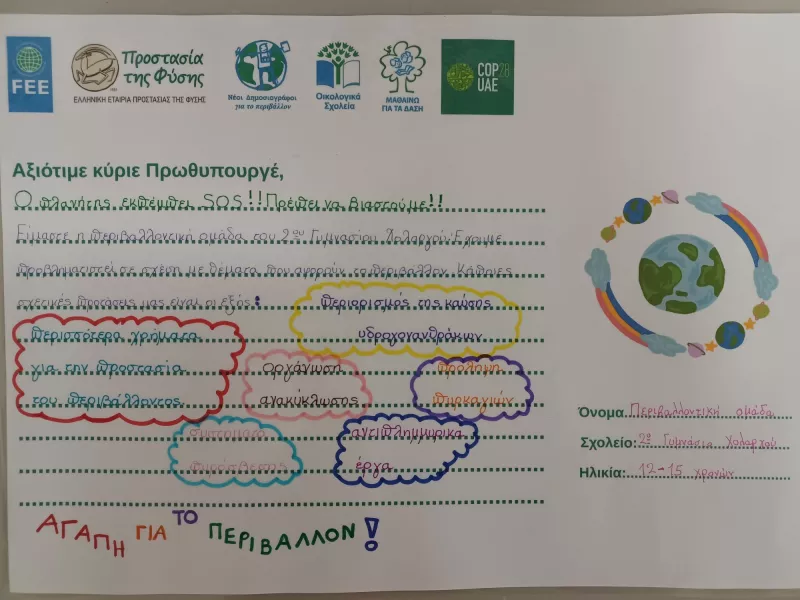 FEE
Προστασία
της Φύσης
ΕΛΛΗΝΙΚΗ ΕΤΑΙΡΙΑ ΠΡΟΣΤΑΣΙΑΣ ΤΗΣ ΦΥΣΗΣ
Νέοι Δημοσιογράφοι
για το περιβάλλον
Οικολογικά
Σχολεία
ΜΑΘΑΙΝΩ
ΓΙΑ ΤΑ ΔΑΣΗ
COP28
UAE
Αξιότιμε κύριε Πρωθυπουργέ,
Ο πλανήτης εκπέμπει SOS!! Πρέπει να βιαστούμε!!
Είμαστε η περιβαλλοντική ομάδα του 2ου Γυμνασίου Χολαργού. Έχουμε
προβληματιστεί σε σχέση με θέματα που αφορούν το περιβάλλον. Κάποιες
σχετικές προτάσεις μας είναι οι εξής:
περιορισμός της καύσης
υδρογονανθράκων
περισσότερα χρήματα
για την προστασία
του περιβάλλοντος
οργάνωση
ανακύκλωσης
πρόληψη
πυρκαγιών
συστήματα
πυρόσβεσης
αντιπλημμυρικά
έργα
ΑΓΑΠΗ ΓΙΑ ΤΟ ΠΕΡΙΒΑΛΛΟΝ!
Όνομα: Περιβαλλοντική ομάδα
Σχολείο: 2ο Γυμνάσιο Χολαργού
Ηλικία: 12-15 χρονών